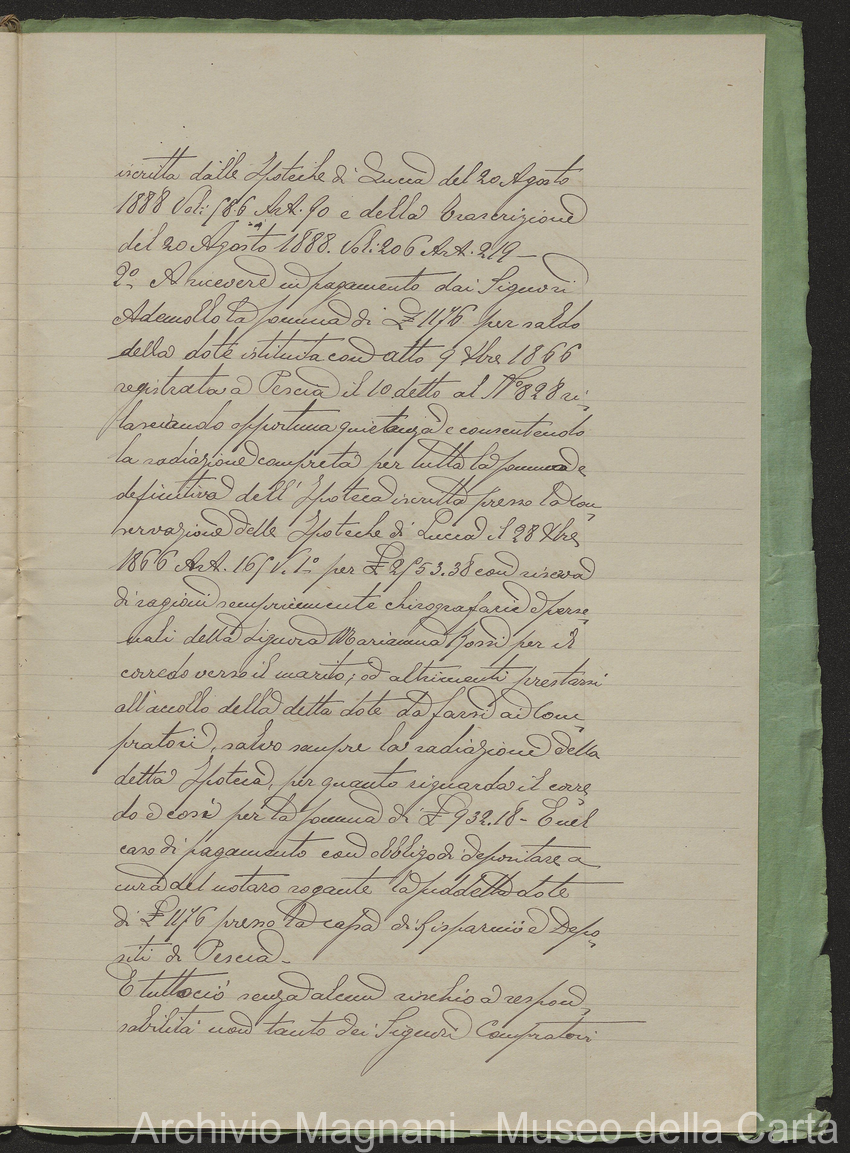 iscritta dalle Ipoteche di Lucca del 20 Agosto
1888 Vol: 586 Art. 90 e della trascrizione
del 20 Agosto 1888. Vol: 206 Art. 219 —
2º A ricevere in pagamento dai Signori
Ademollo la somma di £ 1176 per saldo
della dote istituita con atto 9 Xbre 1866
registrato a Pescia il 10 detto al Nº 828 ri=
lasciando opportuna quietanza e consentendo
la radiazione completa per tutta la somma e
definitiva dell' Ipoteca iscritta presso la Con=
servazione delle Ipoteche di Lucca il 28 Xbre
1866 Art. 165 V. 1º per £ 2553.38 con riserva
di ragioni semplicemente chirografarie e perso=
nali della Signora Marianna Rossi per il
corredo verso il marito; od altrimenti prestarsi
all'accollo della detta dote da farsi ai Com=
pratori, salvo sempre la radiazione della
detta Ipoteca, per quanto riguarda il corre=
do e così per la somma di £ 932.18 - E nel
caso di pagamento con obbligo di depositare a
cura del notaro rogante la suddetta dote
di £ 1176 presso la Cassa di Risparmi e Depo=
siti di Pescia -
E tuttociò senza alcun rischio o respon=
sabilità non tanto dei Signori Compratori
Archivio Magnani - Museo della Carta